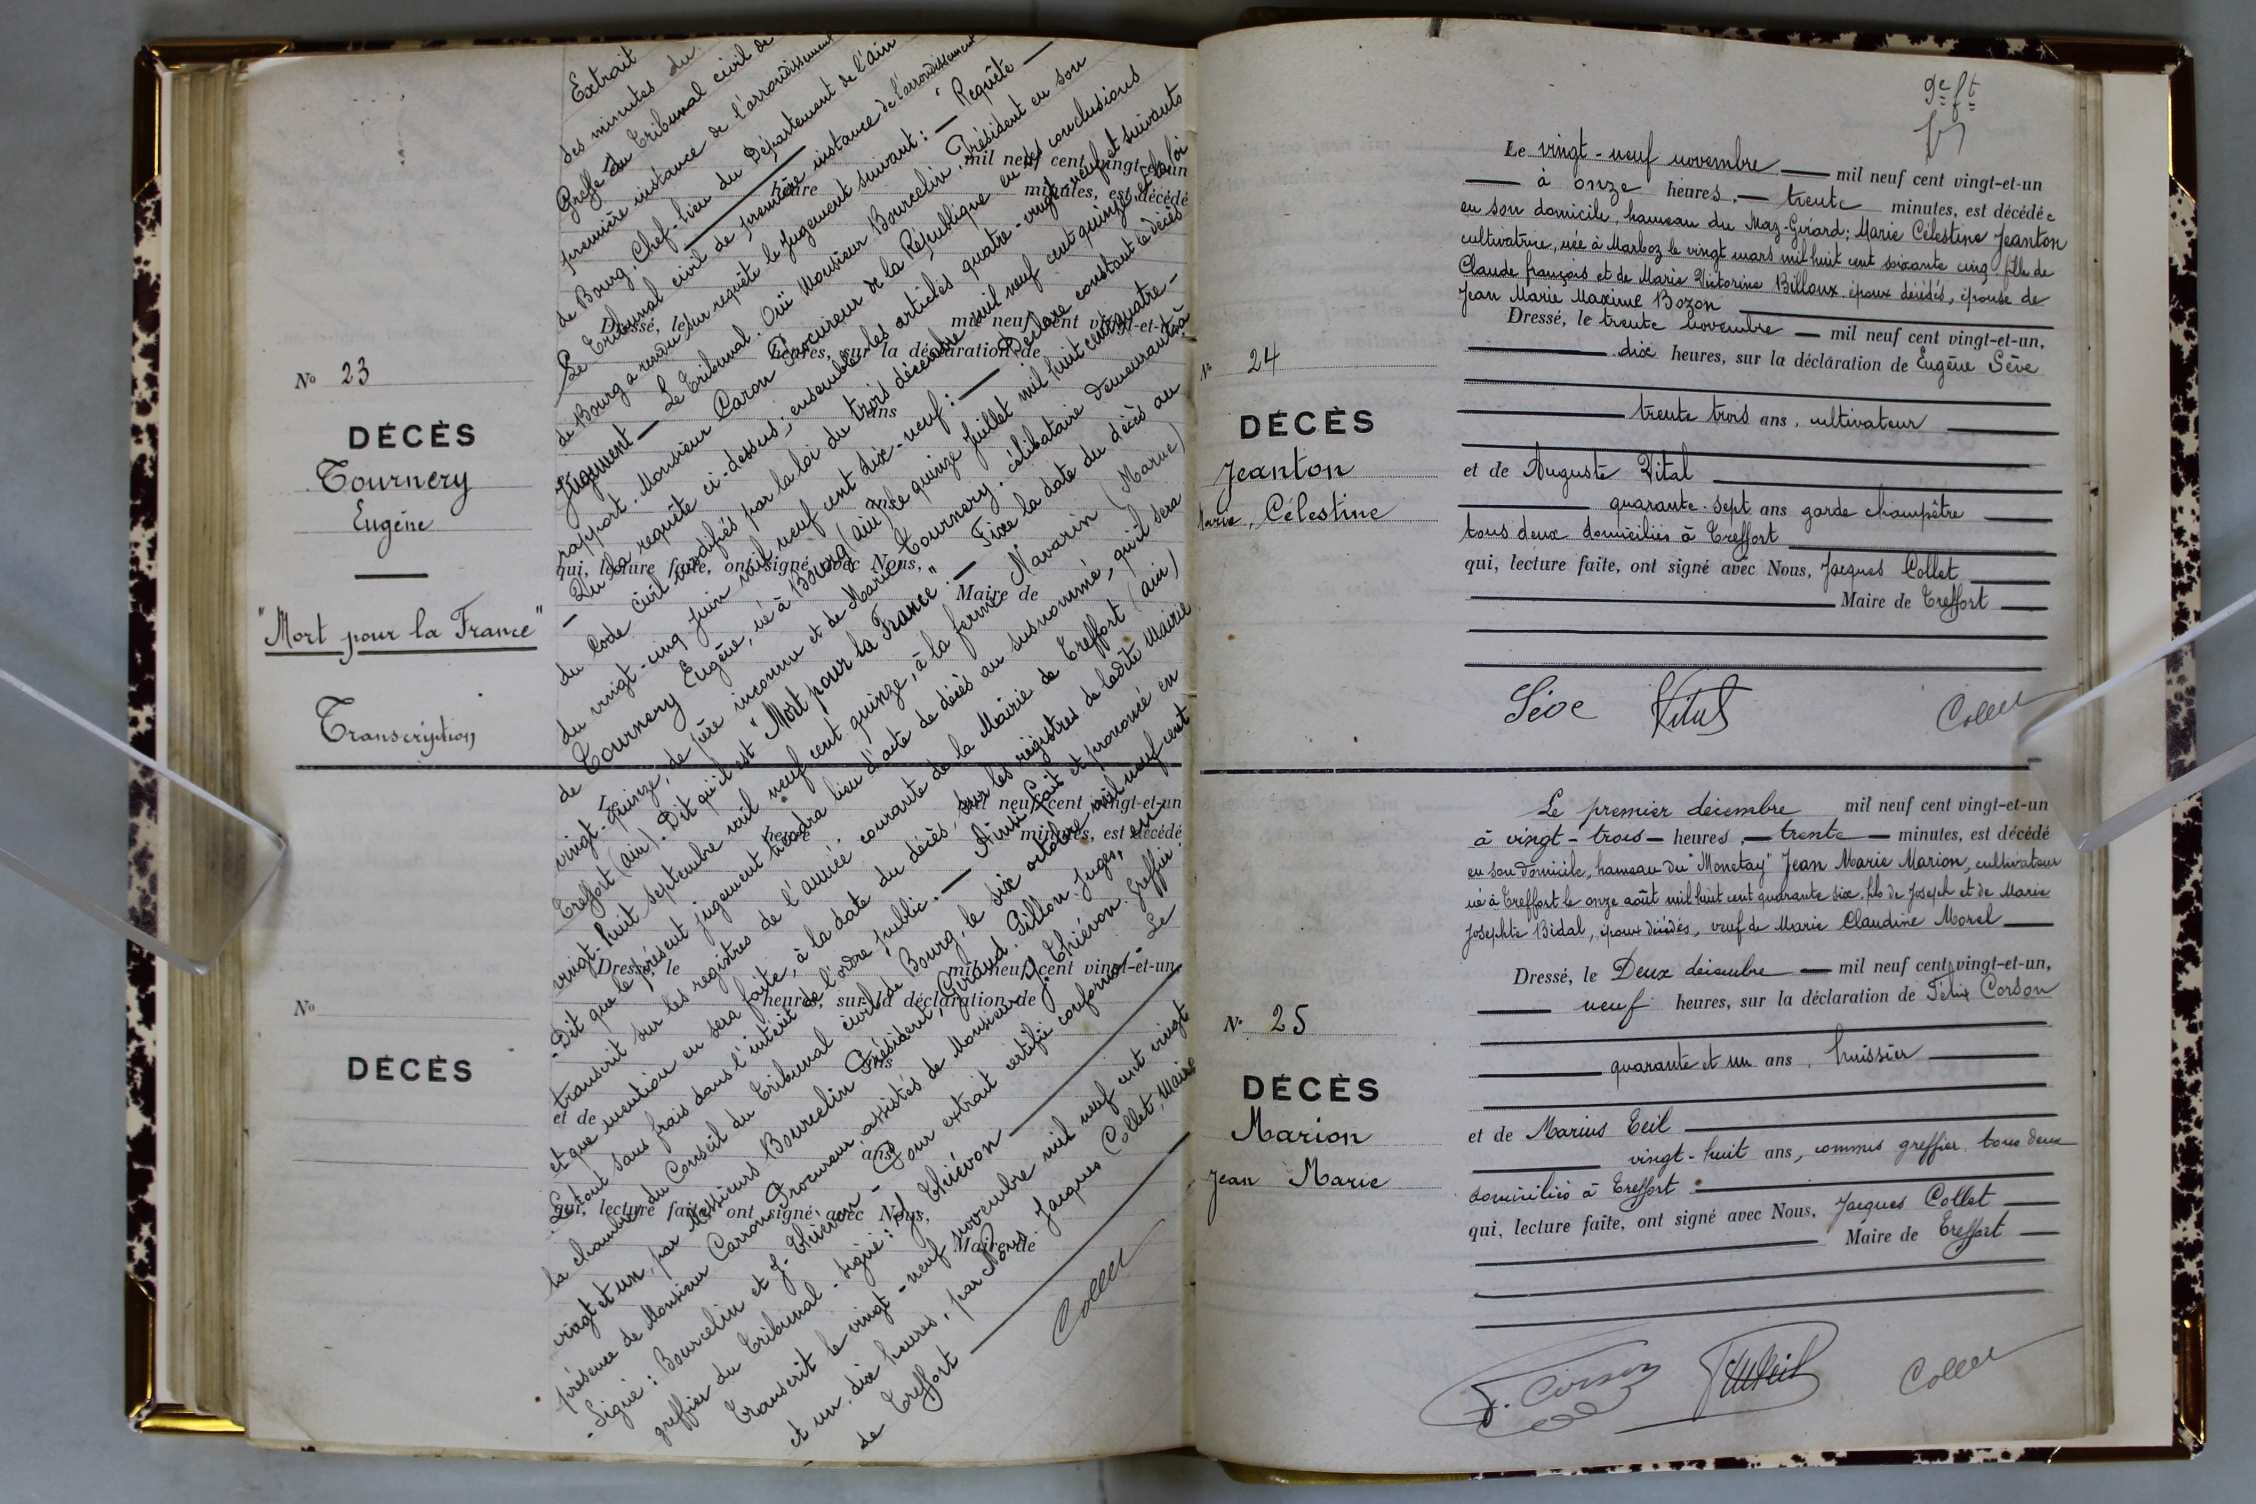 N° 23
DÉCÈS
Tournery
Eugène
"Mort pour la France"
Transcription
N°
DÉCÈS
Extrait
des minutes du
Greffe du Tribunal civil de
première instance de l'arrondissement
de Bourg, Chef-lieu du Département de l'ain
Le Tribunal civil de première instance de l'arrondissement
de Bourg a rendu sur requête le jugement suivant : — Requête —
Jugement — Le Tribunal. Ouï Monsieur Bourcelin, Président en son
rapport. Monsieur Caron Procureur de la République en ses conclusions
— Vu la requête ci-dessus, ensemble les articles quatre-vingt-neuf et suivants
du Code civil modifiés par la loi du trois décembre mil neuf cent quinze, et la loi
du vingt-cinq juin mil neuf cent dix-neuf : — Déclare constant le décès
de Tournery Eugène, né à Bourg (ain) le quinze juillet mil huit cent quatre-
vingt-quinze, de père inconnu et de Marie Tournery, célibataire demeurant à
Treffort (ain). Dit qu'il est "Mort pour la France". — Fixe la date du décès au
vingt-huit septembre mil neuf cent quinze, à la ferme Navarin (Marne)
- Dit que le présent jugement tiendra lieu d'acte de décès au susnommé, qu'il sera
transcrit sur les registres de l'année courante de la Mairie de Treffort (ain)
et que mention en sera faite, à la date du décès, sur les registres de ladite Mairie
- Le tout sans frais dans l'intérêt de l'ordre public. — Ainsi fait et prononcé en
la chambre du Conseil du Tribunal civil de Bourg, le six octobre mil neuf cent
vingt et un, par Messieurs Bourcelin Président, Giraud, Pillon, Juges, en
présence de Monsieur Carron Procureur, assistés de Monsieur J. Thiévon, Greffier.
- Signé : Bourcelin et J. Thiévon - Pour extrait certifié conforme - Le
greffier du Tribunal - signé : J. Thiévon
Transcrit le vingt-neuf novembre mil neuf cent vingt
et un, dix heures, par Nous Jacques Collet, Maire
de Treffort
Collet
mil neuf cent vingt-et-un
heure minutes, est décédé
Dressé, le mil neuf cent vingt-et-un,
heures, sur la déclaration de
ans
ans
qui, lecture faite, ont signé avec Nous,
Maire de
mil neuf cent vingt-et-un
heure minutes, est décédé
Dressé, le mil neuf cent vingt-et-un,
heures, sur la déclaration de
ans
et de
ans
qui, lecture faite, ont signé avec Nous,
Maire de
9e ft
N° 24
DÉCÈS
Jeanton
Marie, Célestine
Le vingt-neuf novembre — mil neuf cent vingt-et-un
— à onze heures, — trente minutes, est décédée
en son domicile, hameau du Maz-Girard; Marie Célestine Jeanton
cultivatrice, née à Marboz le vingt mars mil huit cent soixante cinq fille de
Claude françois et de Marie Victorine Billoux époux décédés, épouse de
Jean Marie Maxime Bozon
Dressé, le trente Novembre — mil neuf cent vingt-et-un,
dix heures, sur la déclaration de Eugène Sève
trente trois ans, cultivateur
et de Auguste Vital
quarante-sept ans garde champêtre
tous deux domiciliés à Treffort
qui, lecture faite, ont signé avec Nous, Jacques Collet
Maire de Treffort
Sève Vital Collet
N° 25
DÉCÈS
Marion
Jean Marie
Le premier décembre mil neuf cent vingt-et-un
à vingt-trois — heures, — trente — minutes, est décédé
en son domicile, hameau du "Monetay" Jean Marie Marion, cultivateur
né à Treffort le onze août mil huit cent quarante six, fils de Joseph et de Marie
Josephte Bidal, époux décédés, veuf de Marie Claudine Morel
Dressé, le Deux décembre — mil neuf cent vingt-et-un,
neuf heures, sur la déclaration de Félix Corson
quarante et un ans, huissier
et de Marius Teil
vingt-huit ans, commis greffier tous deux
domiciliés à Treffort
qui, lecture faite, ont signé avec Nous, Jacques Collet
Maire de Treffort
F. Corson Collet